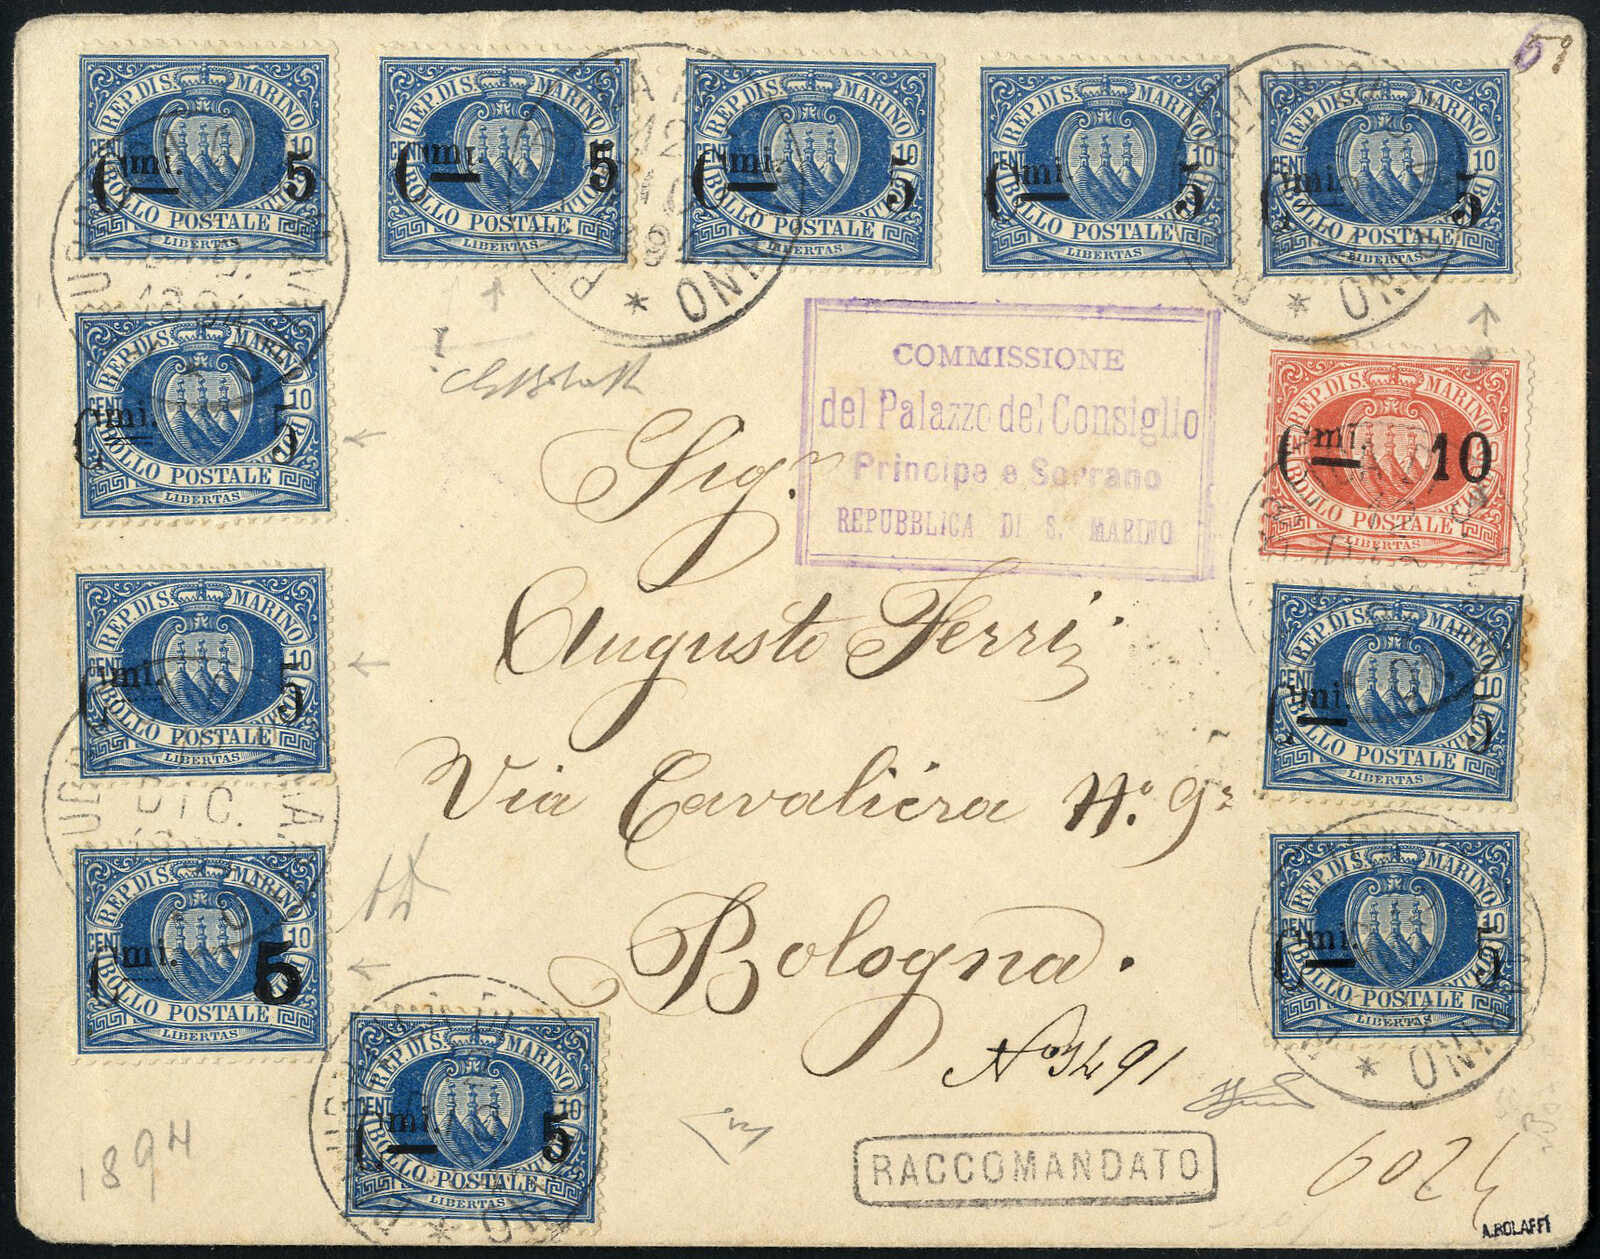 REP. DI S. MARINO
CENT. 10
Cmi. 5
BOLLO POSTALE
LIBERTAS
REP. DI S. MARINO
CENT. 10
Cmi. 5
BOLLO POSTALE
LIBERTAS
REP. DI S. MARINO
CENT. 10
Cmi. 5
BOLLO POSTALE
LIBERTAS
REP. DI S. MARINO
CENT. 10
Cmi. 5
BOLLO POSTALE
LIBERTAS
REP. DI S. MARINO
CENT. 10
Cmi. 5
BOLLO POSTALE
LIBERTAS
REP. DI S. MARINO
CENT. 10
Cmi. 5
BOLLO POSTALE
LIBERTAS
COMMISSIONE
del Palazzo del Consiglio
Principe e Sovrano
REPUBBLICA DI S. MARINO
REP. DI S. MARINO
Cmi. 10
BOLLO POSTALE
LIBERTAS
Sigr
Augusto Ferri
Via Cavaliera No. 9
Bologna.
No 3491
REP. DI S. MARINO
CENT. 10
Cmi. 5
BOLLO POSTALE
LIBERTAS
REP. DI S. MARINO
CENT. 10
Cmi. 5
BOLLO POSTALE
LIBERTAS
REP. DI S. MARINO
CENT. 10
Cmi. 5
BOLLO POSTALE
LIBERTAS
REP. DI S. MARINO
CENT. 10
Cmi. 5
BOLLO POSTALE
LIBERTAS
REP. DI S. MARINO
CENT. 10
Cmi. 5
BOLLO POSTALE
LIBERTAS
1894
RACCOMANDATO
A.BOLAFFI